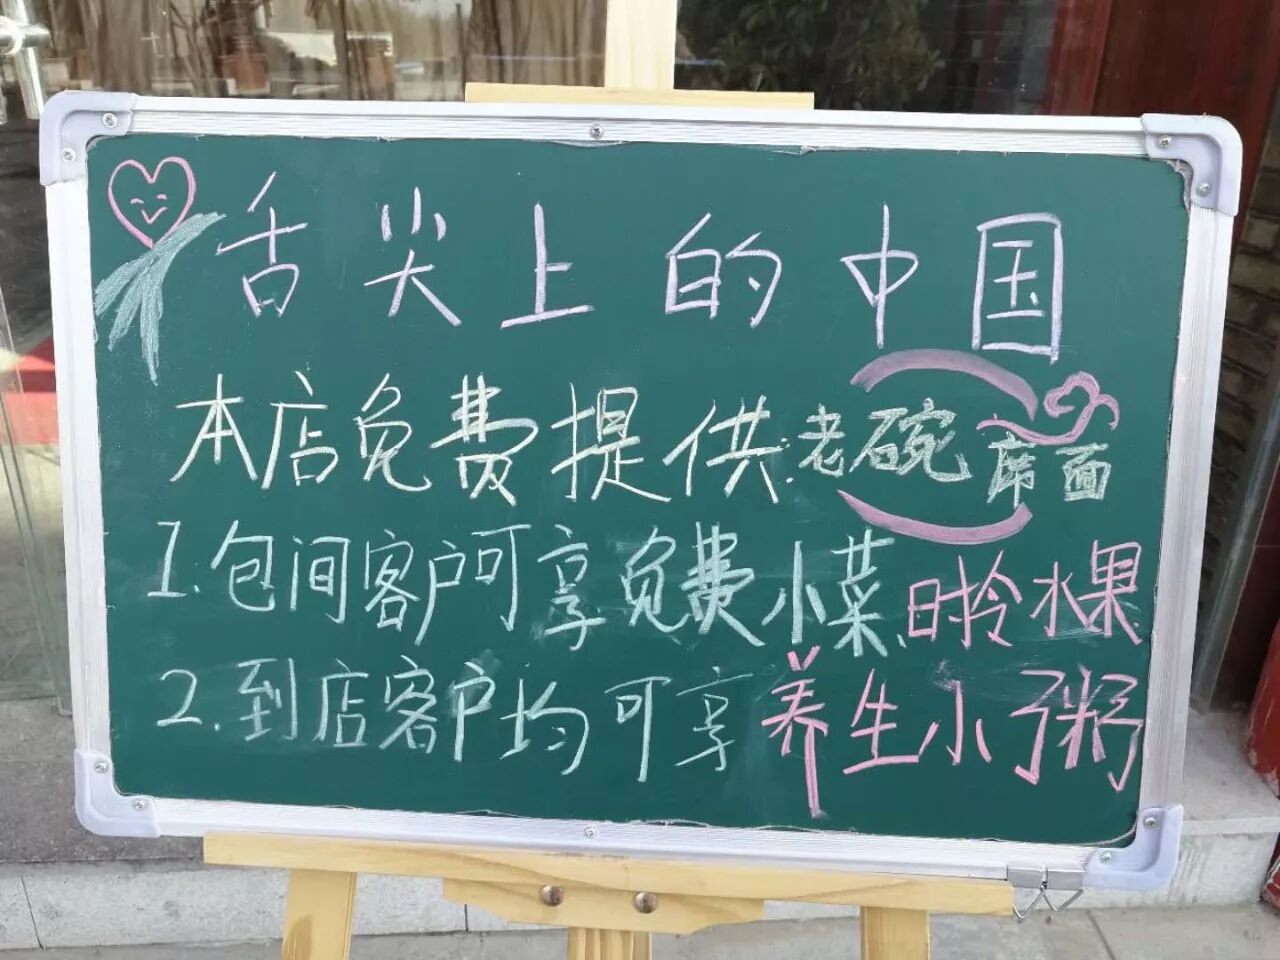 舌尖上的中国
本店免费提供:老碗席面
1.包间客户可享免费小菜、时拎水果
2.到店客户均可享养生小粥